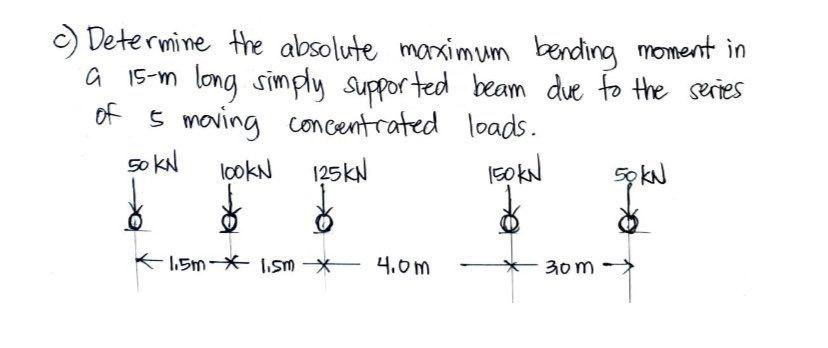 c) Determine the absolute maximum bending moment in
a 15-m long simply supported beam due to the series
of 5 moving concentrated loads.
50 kN 100kN 125kN 150kN 50kN
1.5m 1.5m 4.0m 3.0m